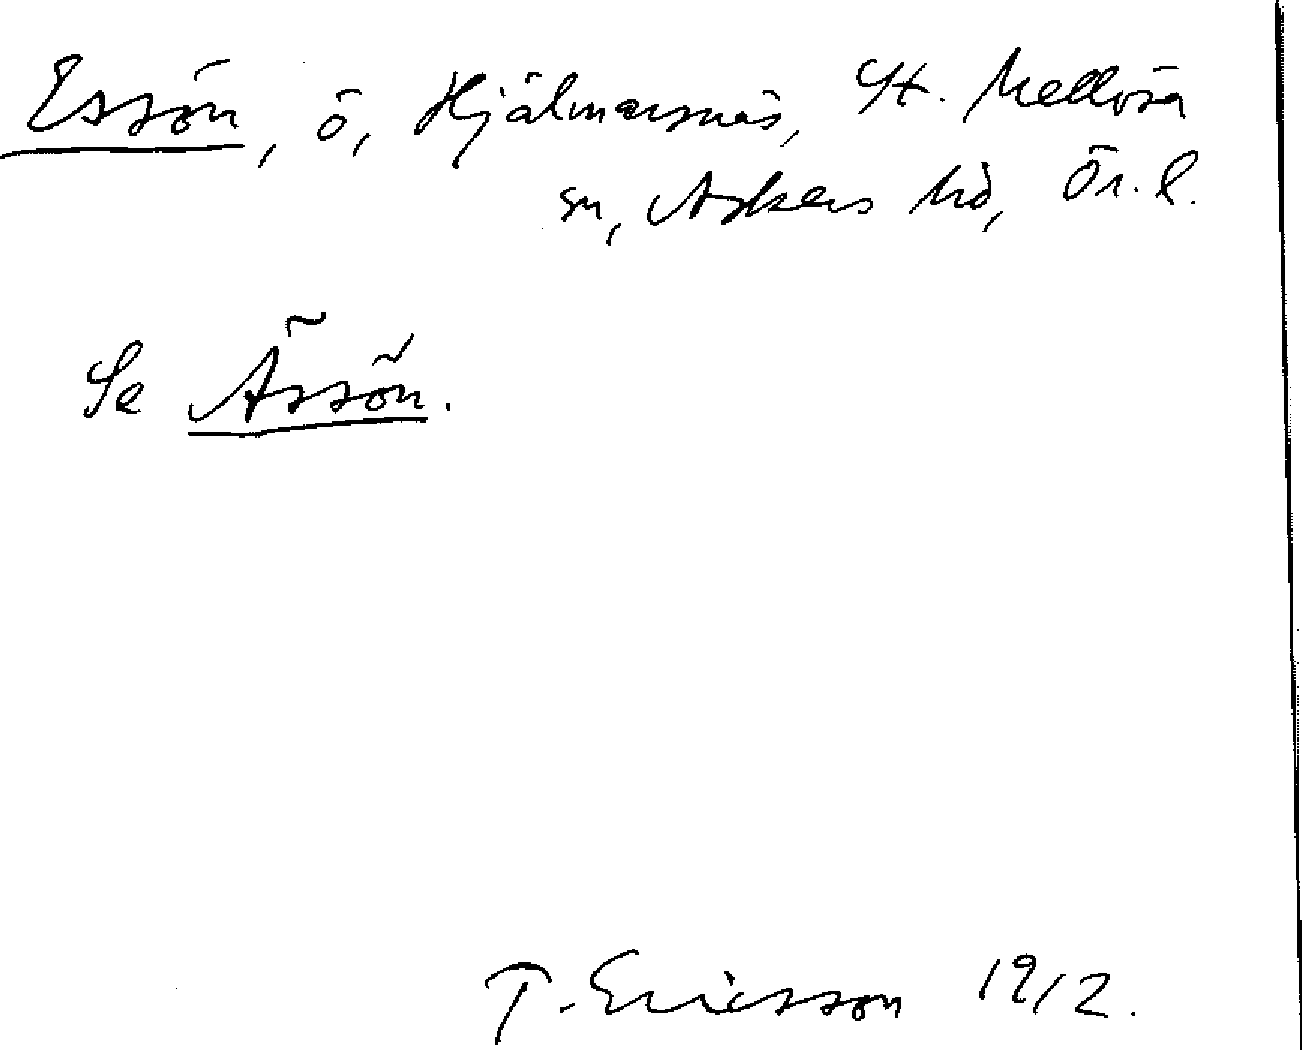 Essön, ö, Hjälmarsnäs, St. Mellösa
sn, Askers hd, Ör. l.
Se Ässön.
T. Ericsson 1912.